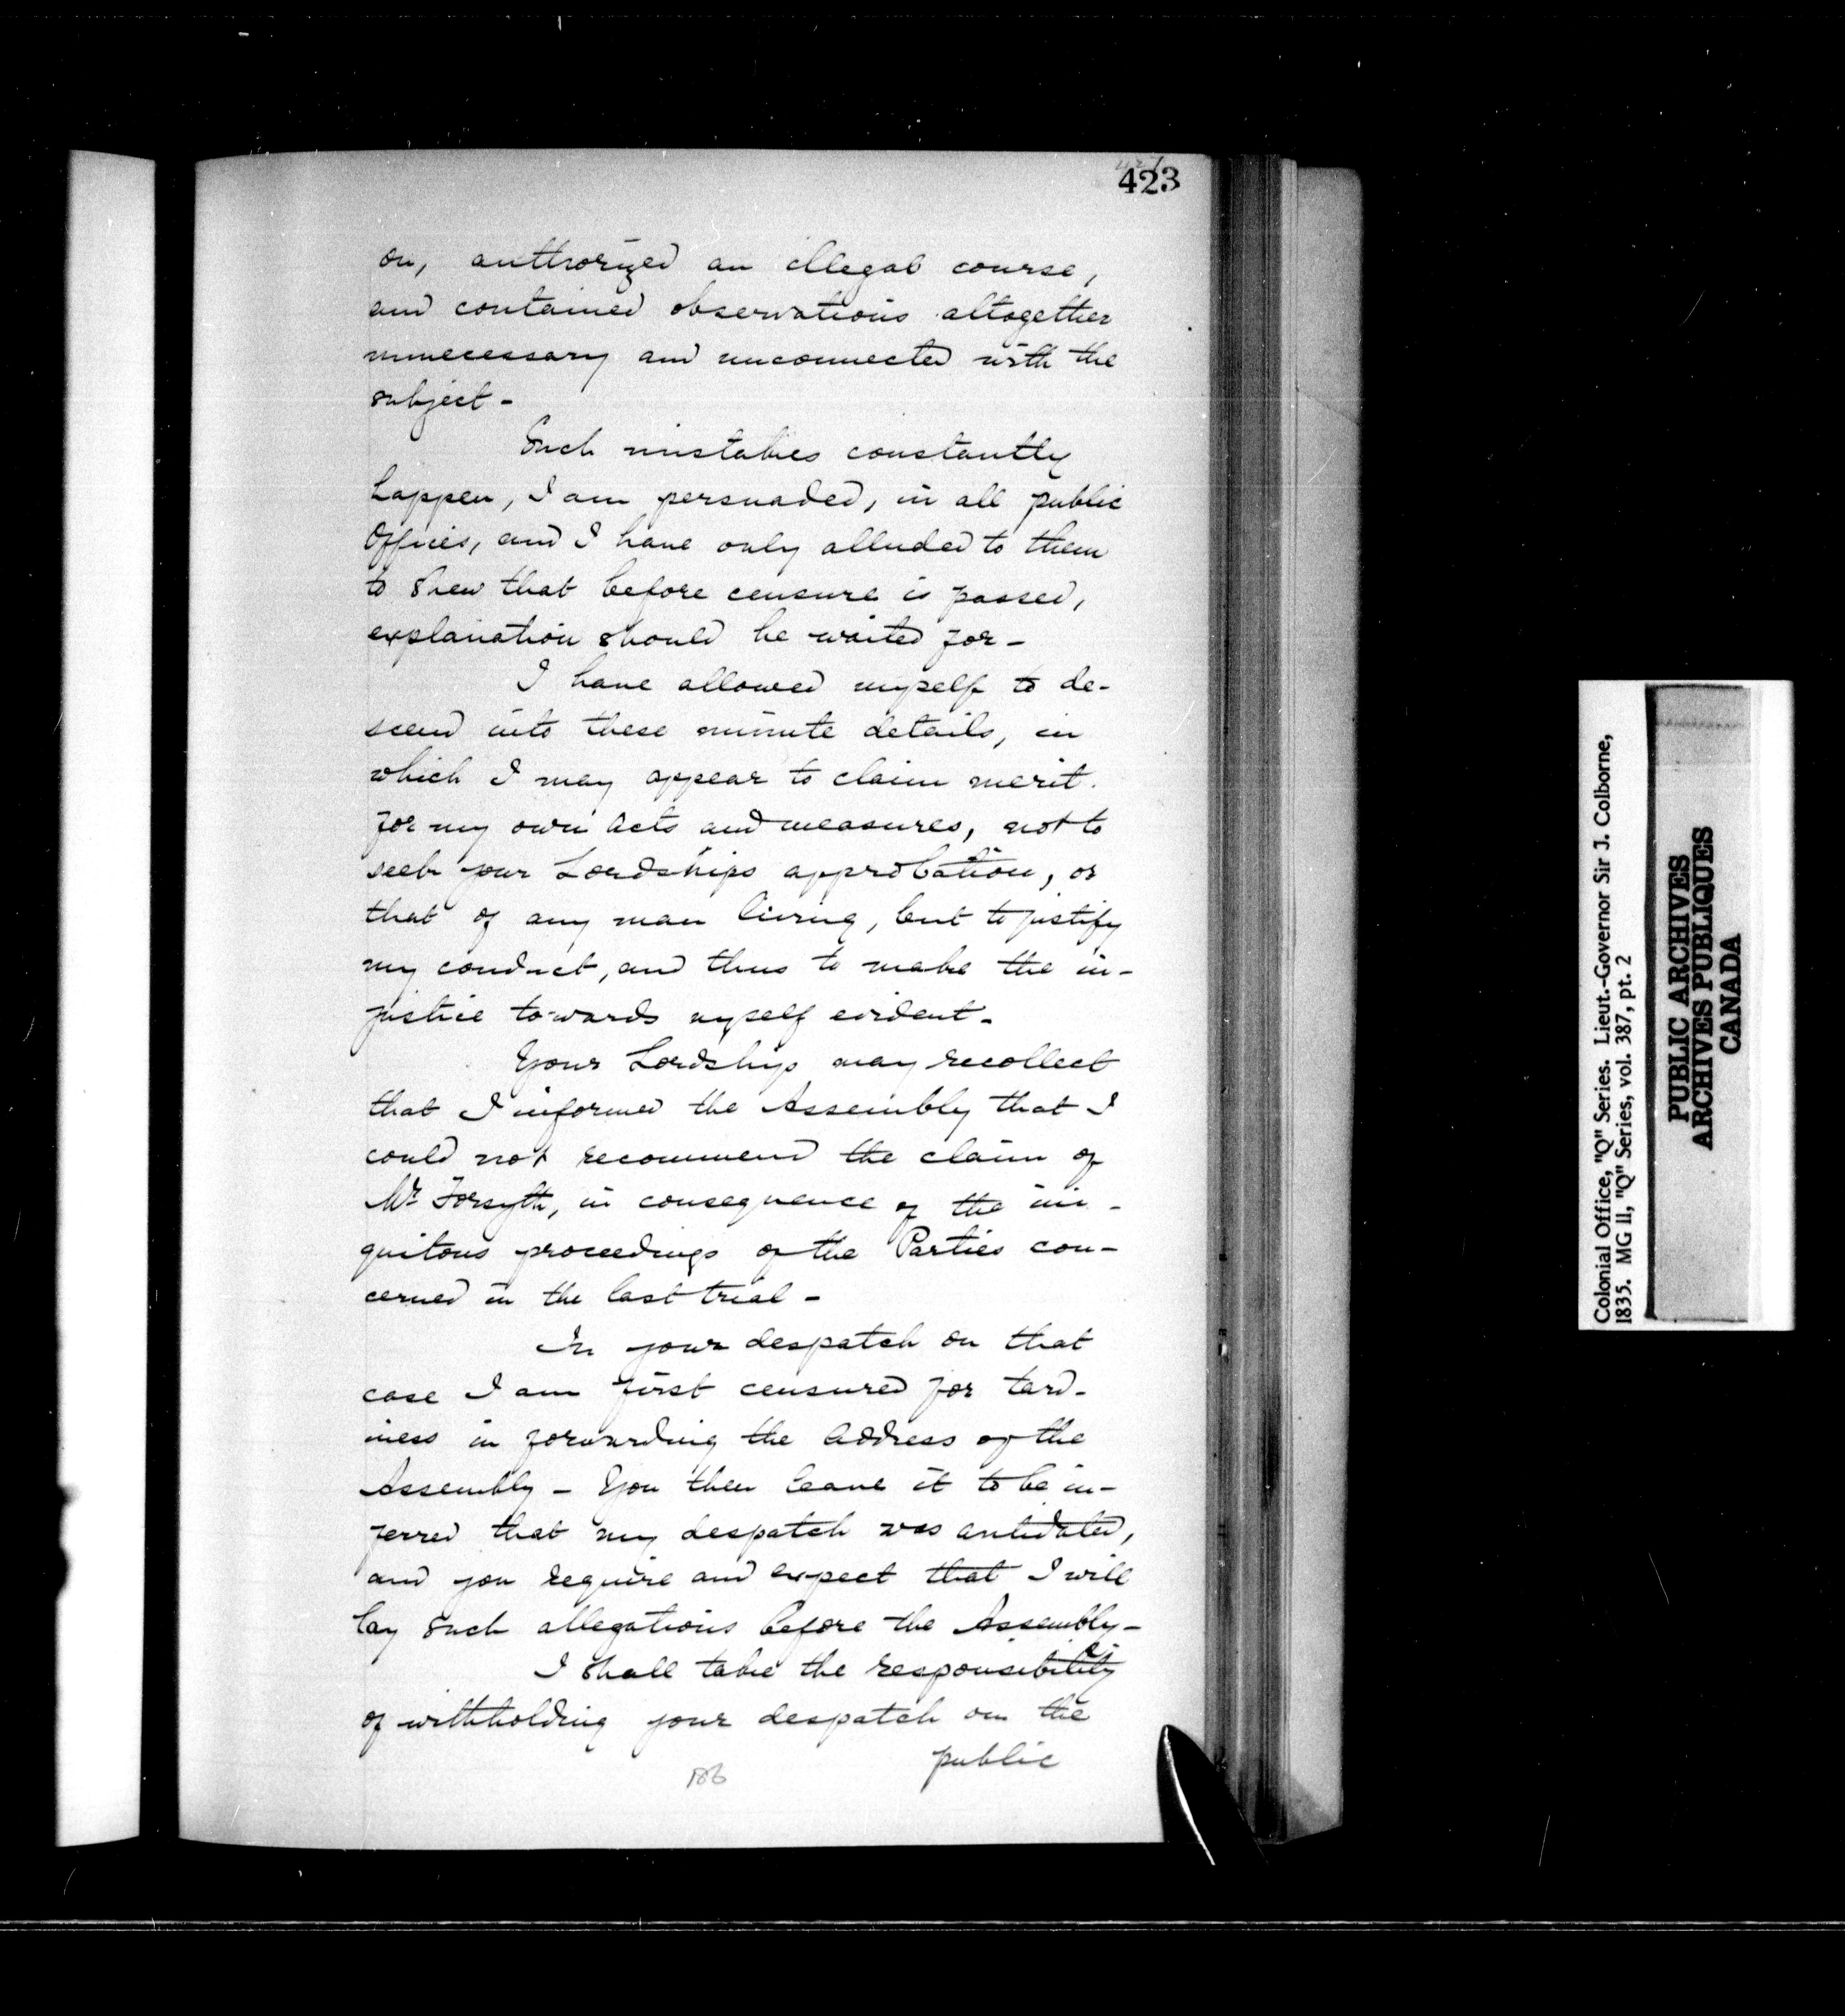 423
on, authorized an illegal course,
and contained observations altogether
unnecessary and unconnected with the
subject -
Such mistakes constantly
happen, I am persuaded, in all public
Offices, and I have only alluded to them
to shew that before censure is passed,
explanation should be waited for -
I have allowed myself to de-
scend into these minute details, in
which I may appear to claim merit
for my own acts and measures, not to
seek your Lordships approbation, or
that of any man living, but to justify
my conduct, and thus to make the in-
justice towards myself evident -
Your Lordship may recollect
that I informed the Assembly that I
could not recommend the claim of
Mr Forsyth, in consequence of the ini-
quitous proceedings of the Parties con-
cerned in the last trial -
In your despatch on that
case I am first censured for tard-
iness in forwarding the address of the
Assembly - You then leave it to be in-
ferred that my despatch was antidated,
and you require and expect that I will
lay such allegations before the Assembly -
I shall take the responsibility
of withholding your despatch on the
public
186
Colonial Office, "Q" Series. Lieut.-Governor Sir J. Colborne,
1835. MG 11, "Q" Series, vol. 387, pt. 2
PUBLIC ARCHIVES
ARCHIVES PUBLIQUES
CANADA